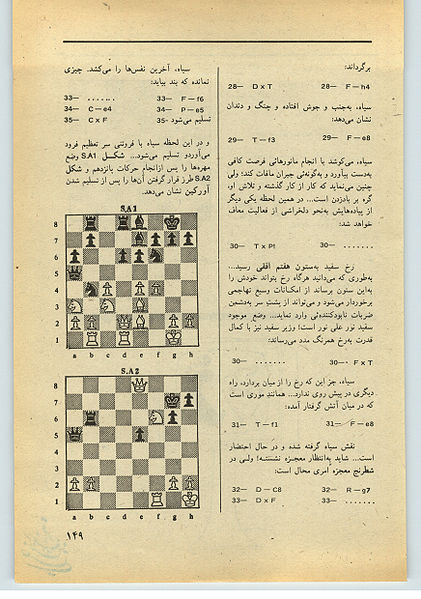 برگرداند:
28— D x T 28— F — h4
سیاه، به‌جنب و جوش افتاده و چنگ و دندان
نشان می‌دهد:
29— T — f3 29— F — e8
سیاه، می‌کوشد با انجام مانورهائی فرصت کافی
به‌دست بیاورد و به‌گونه‌ئی جبران مافات کند؛ ولی
چنین می‌نماید که کار از کار گذشته و تلاش او،
گره بر بادزدن است... در همین لحظه یکی دیگر
از پیاده‌هایش به‌نحو دلخراشی از فعالیت معاف
خواهد شد:
30— T x P! 30— .......
رخ سفید به‌ستون هفتم افقی رسید...
به‌طوری که می‌دانید هرگاه رخ بتواند خودش را
به‌این ستون برساند از امکانات وسیع تهاجمی
برخوردار می‌شود و می‌تواند از پشت سر به‌دشمن
ضربات نابودکننده‌ئی وارد نماید... وضع موجود
سفید نور علی نور است! وزیر سفید نیز با کمال
قدرت به‌رخ همرنگ مدد می‌رساند:
30— ....... 30— F x T
سیاه، جز این که رخ را از میان بردارد، راه
دیگری در پیش روی ندارد... همانند موری است
که در میان آتش گرفتار آمده:
31— T — f1 31— F — e8
نفس سیاه گرفته شده و در حال احتضار
است... شاید به‌انتظار معجزه نشسته! ولی در
شطرنج معجزه امری محال است:
32— D — C8 32— R — g7
33— D x F 33— .......
سیاه، آخرین نفس‌ها را می‌کشد. چیزی
نمانده که بند بیاید:
33— ....... 33— F — f6
34— C — e4 34— P — e5
35— C x F تسلیم می‌شود -35
و در این لحظه سیاه با فروتنی سر تعظیم فرود
می‌آوردو تسلیم می‌شود... شکل S.A1 وضع
مهره‌ها را پس ازانجام حرکات بانزدهم و شکل
S.A2 طرز قرار گرفتن آن‌ها را پس از تسلیم شدن
آورکین نشان می‌دهد.
S.A1
8
7
6
5
4
3
2
1
a b c d e f g h
S.A2
8
7
6
5
4
3
2
1
a b c d e f g h
۱۴۹